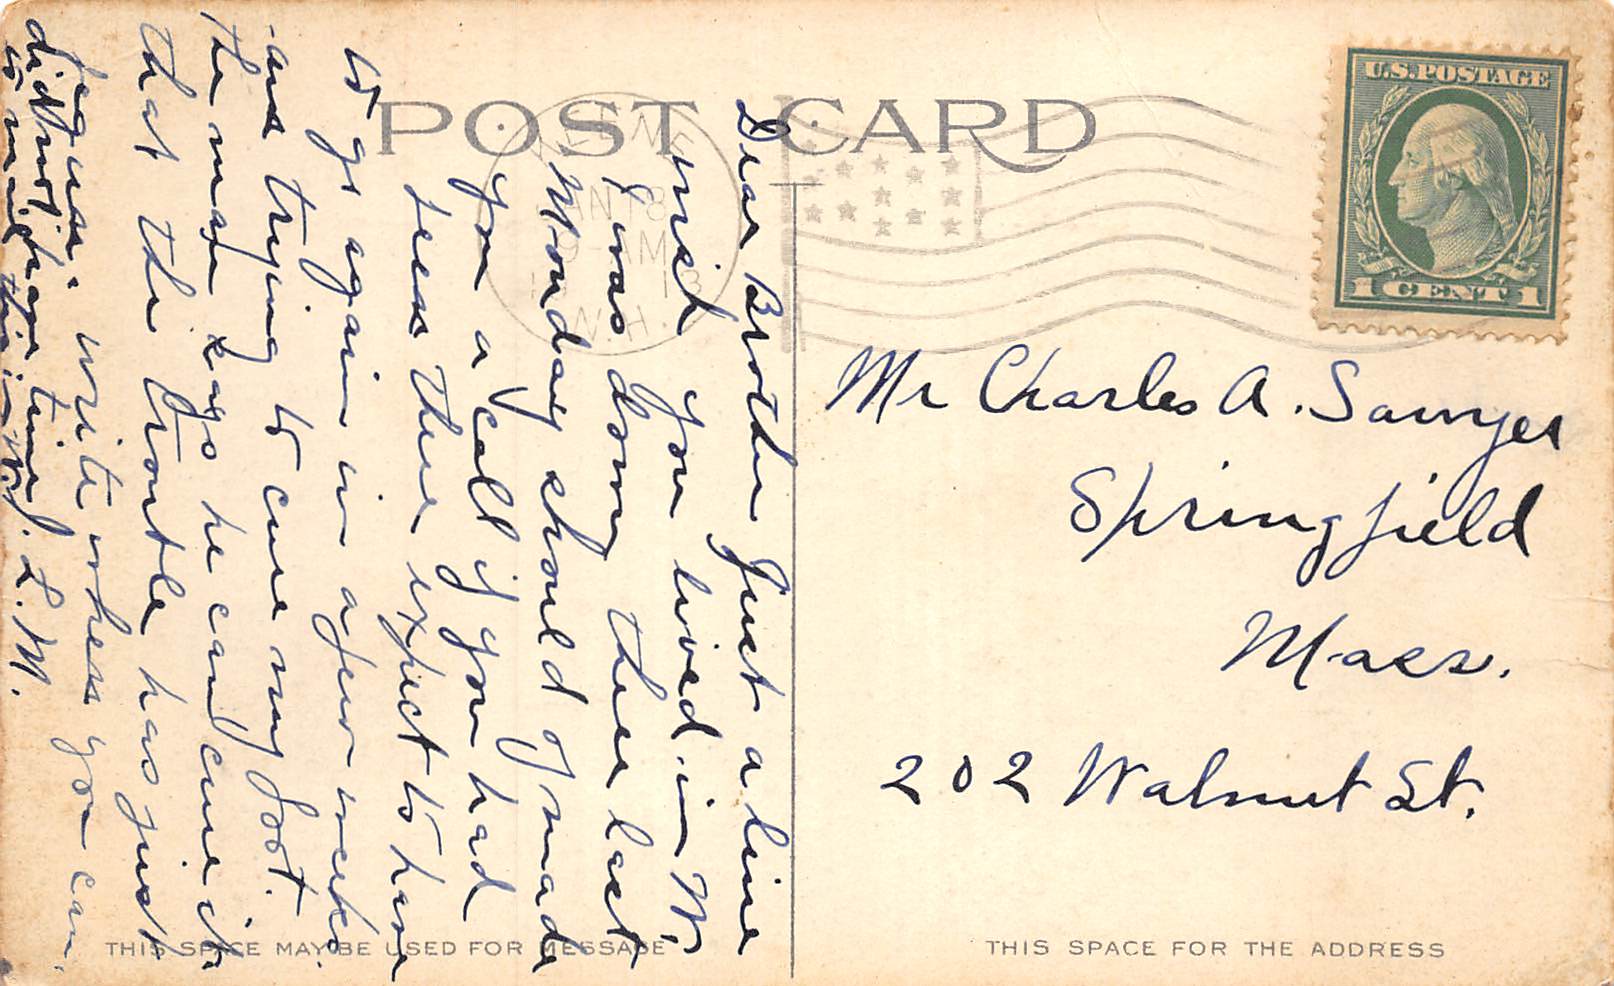 POST CARD
U.S. POSTAGE
1 CENT 1
JAN 18
9 - AM
N.H.
Dear Brother Just a line
wish you lived in W.
I was down there last
Monday should of made
you a call if you had
been there expect to have
to go again in a few weeks.
and trying to cure my foot.
the man says he can cure it.
that the trouble has just
begun. write when you can.
did not have time L. M.
to mail this in W.
Mr Charles A. Sawyer
Springfield
Mass.
202 Walnut St.
THIS SPACE MAY BE USED FOR MESSAGE
THIS SPACE FOR THE ADDRESS